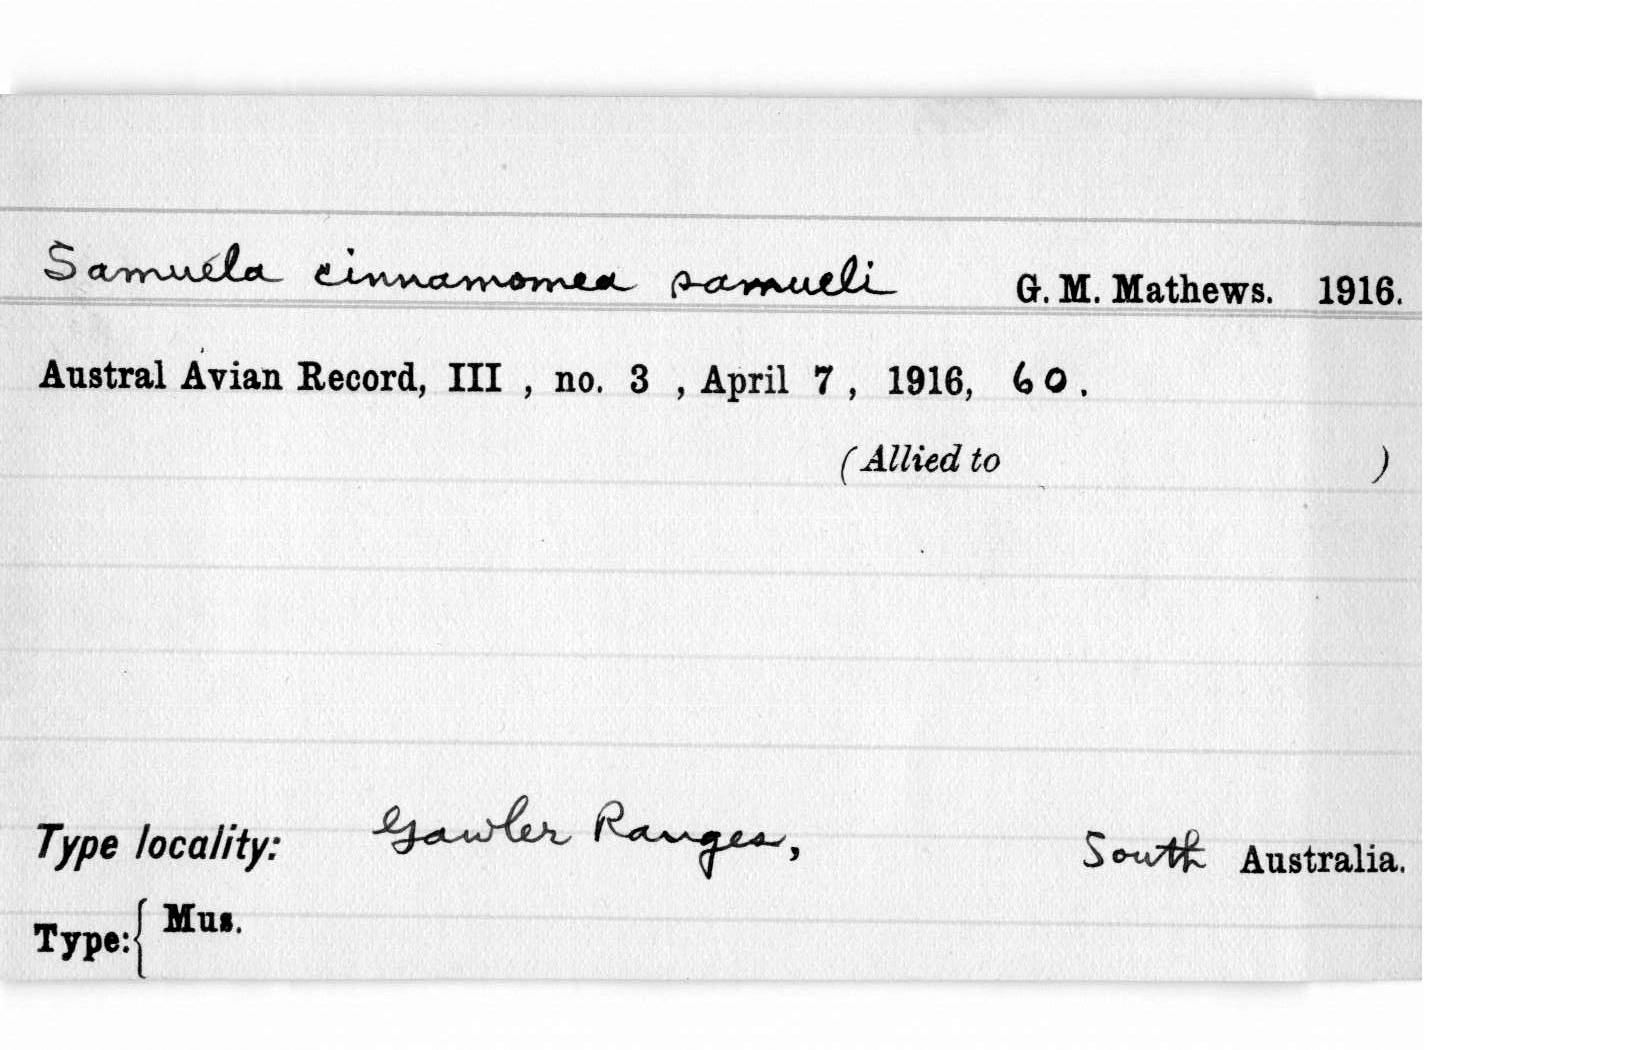 Samuela cinnamomea samueli G. M. Mathews. 1916.
Austral Avian Record, III , no. 3 , April 7 , 1916, 60.
(Allied to )
Type locality: Gawler Ranges, South Australia.
Type:{ Mus.